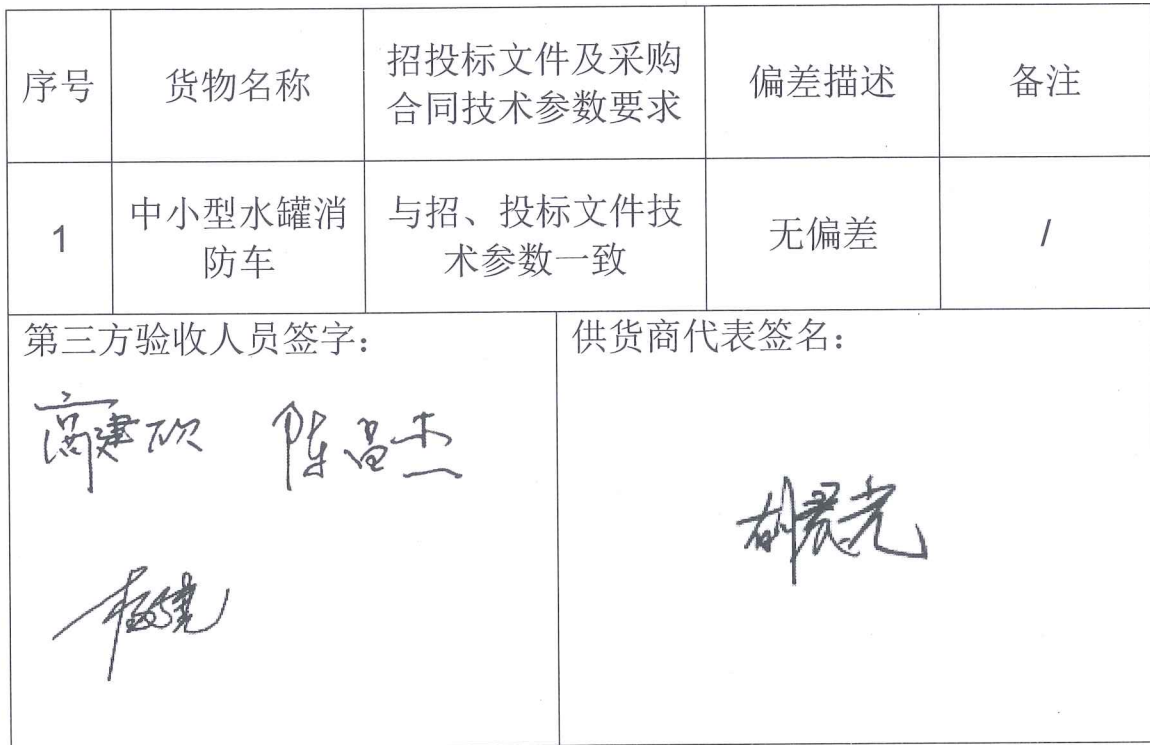 序号
货物名称
招投标文件及采购
合同技术参数要求
偏差描述
备注
1
中小型水罐消
防车
与招、投标文件技
术参数一致
无偏差
/
第三方验收人员签字：
供货商代表签名：
高建欣 陈昌杰
胡晨光